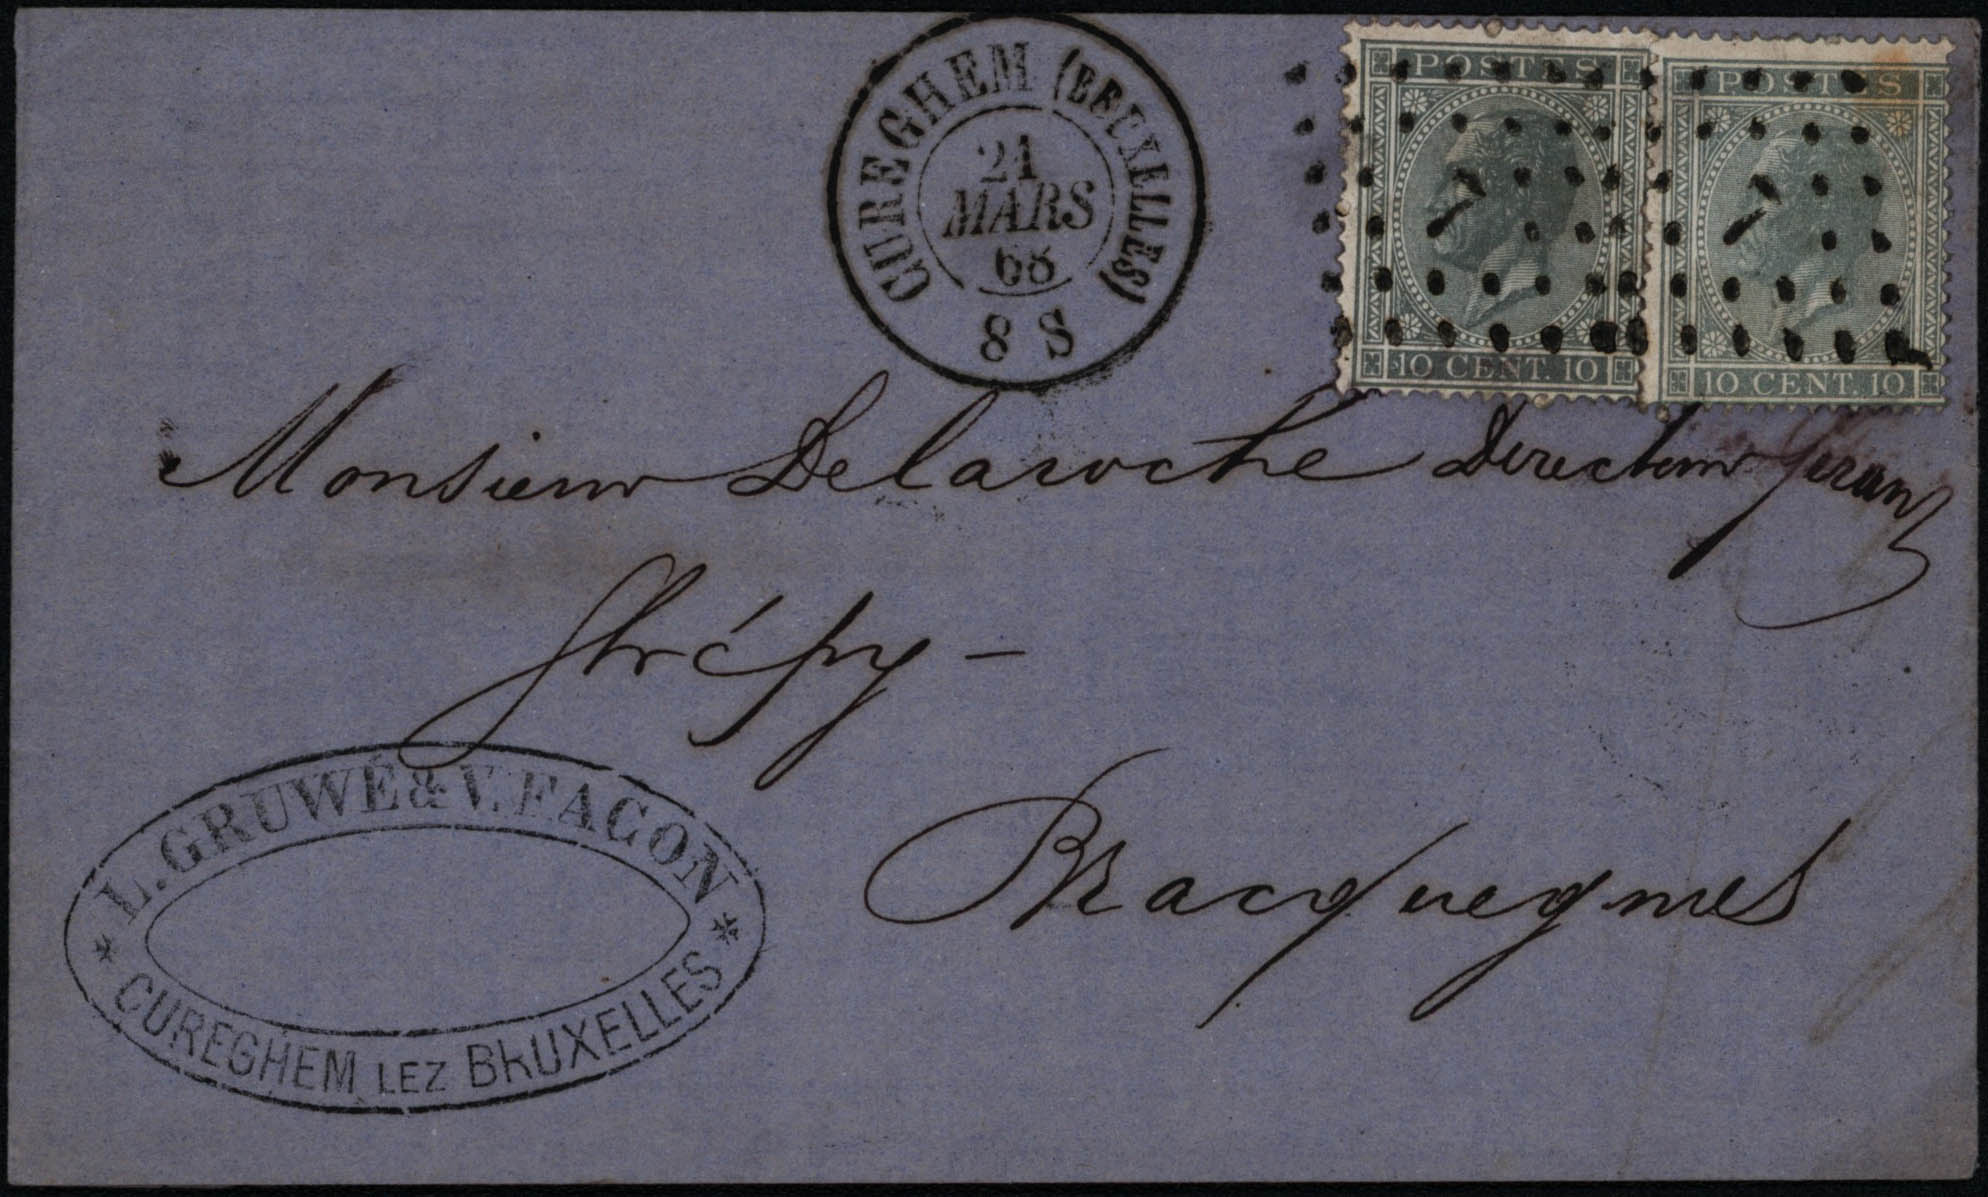 CUREGHEM (BRUXELLES)
21
MARS
68
8 S
POSTES
10 CENT. 10
POSTES
10 CENT. 10
Monsieur Delaroche Directeur Gérant
Strépy -
Bracquegnies
L. GRUWÉ & V. FACON
* CUREGHEM LEZ BRUXELLES *